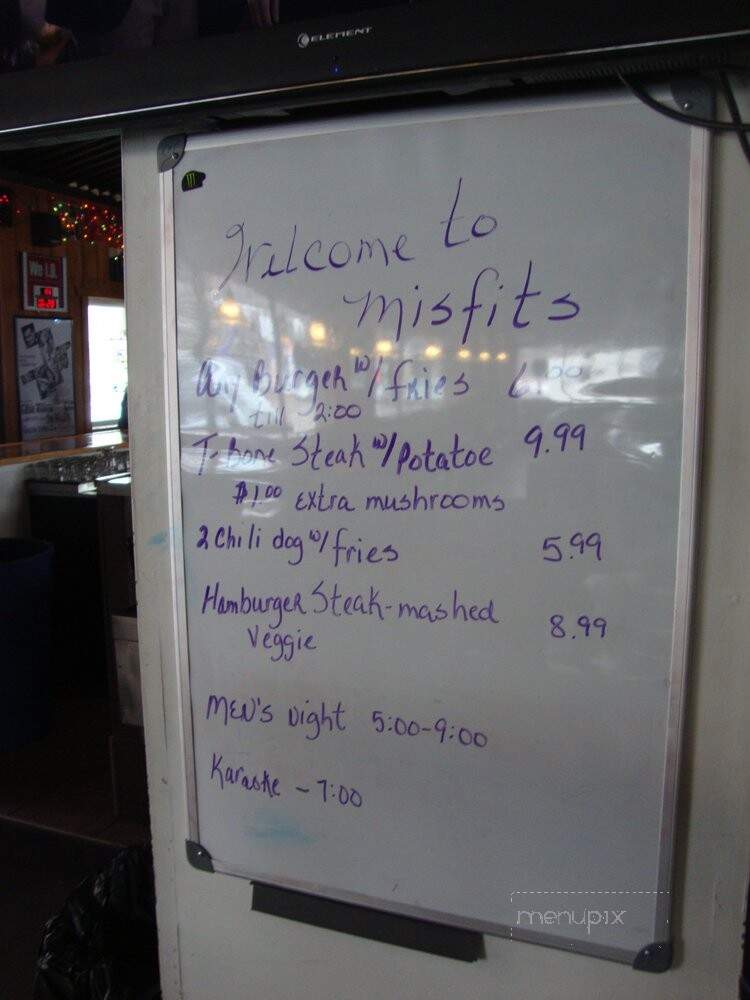 ELEMENT
Welcome to
misfits
Any Burger w/ fries 6.00
till 2:00
T-Bone Steak w/ potatoe 9.99
$1.00 extra mushrooms
2 Chili dog w/ fries 5.99
Hamburger Steak-mashed 8.99
Veggie
MEN'S Night 5:00-9:00
Karaoke - 7:00
We I.D.
menupix